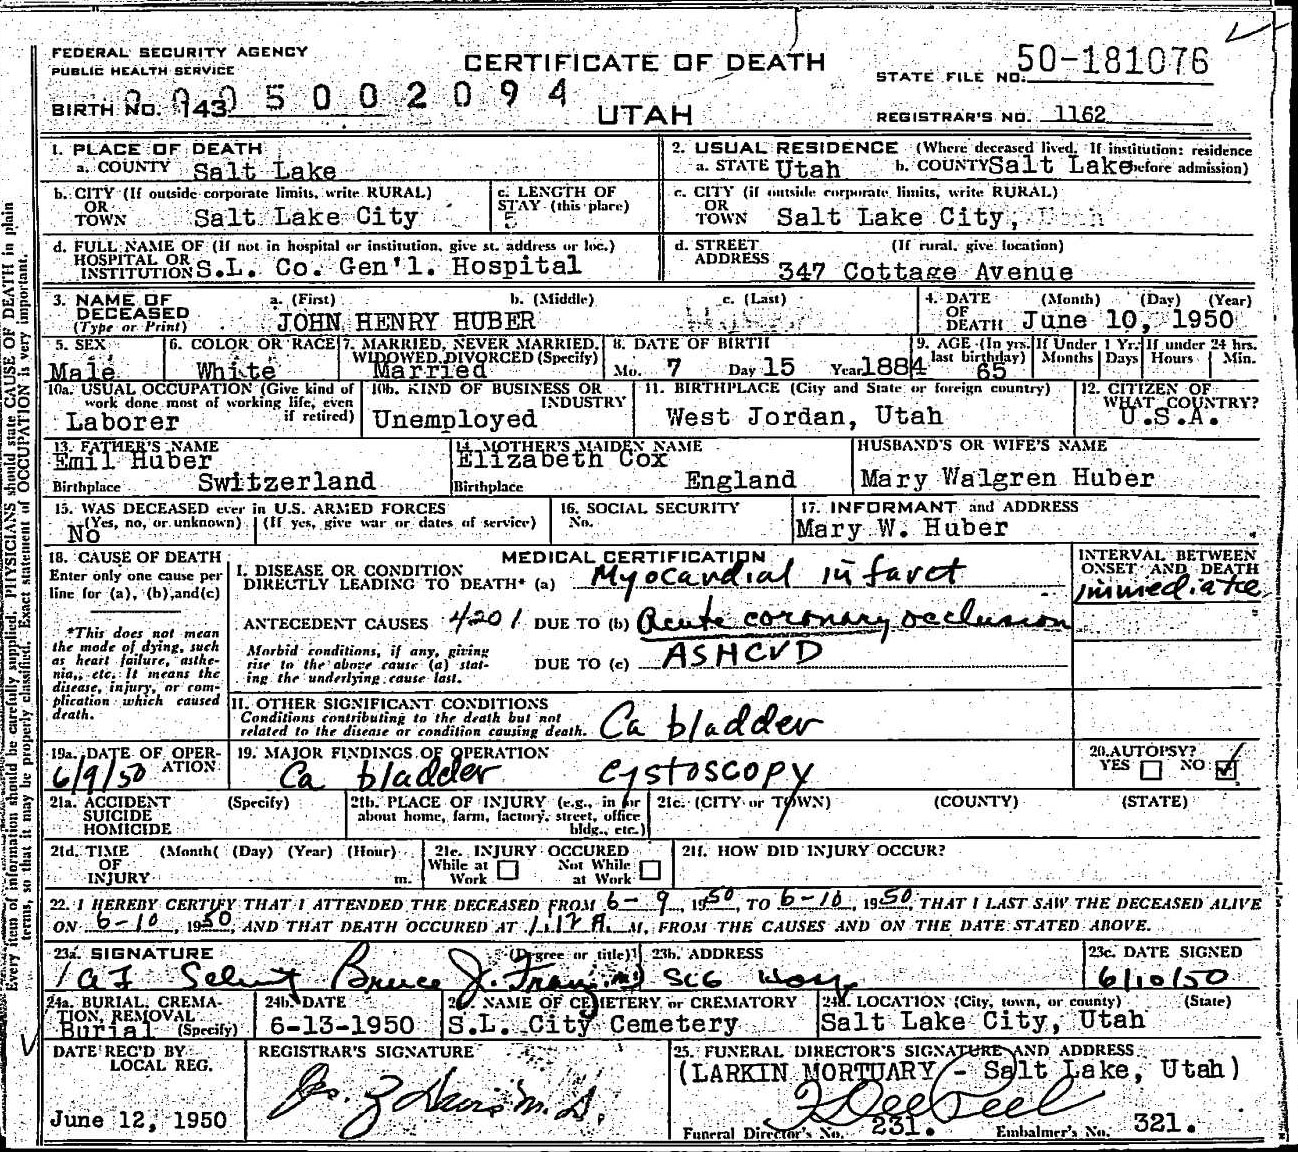 FEDERAL SECURITY AGENCY
PUBLIC HEALTH SERVICE
CERTIFICATE OF DEATH
STATE FILE NO. 50-181076
BIRTH NO. 143 5002094
UTAH
REGISTRAR'S NO. 1162
1. PLACE OF DEATH
a. COUNTY Salt Lake
2. USUAL RESIDENCE (Where deceased lived. If institution: residence before admission)
a. STATE Utah b. COUNTY Salt Lake
b. CITY (If outside corporate limits, write RURAL)
OR TOWN Salt Lake City
c. LENGTH OF STAY (this place) 5
c. CITY (if outside corporate limits, write RURAL)
OR TOWN Salt Lake City, Utah
d. FULL NAME OF (If not in hospital or institution, give st. address or loc.)
HOSPITAL OR INSTITUTION S.L. Co. Gen'l. Hospital
d. STREET ADDRESS (If rural, give location)
347 Cottage Avenue
3. NAME OF DECEASED (Type or Print)
a. (First) b. (Middle) c. (Last)
JOHN HENRY HUBER
4. DATE OF DEATH (Month) (Day) (Year)
June 10, 1950
5. SEX
Male
6. COLOR OR RACE
White
7. MARRIED, NEVER MARRIED, WIDOWED, DIVORCED (Specify)
Married
8. DATE OF BIRTH
Mo. 7 Day 15 Year 1884
9. AGE (In yrs. last birthday) 65
If Under 1 Yr. Months Days
If under 24 hrs. Hours Min.
10a. USUAL OCCUPATION (Give kind of work done most of working life, even if retired)
Laborer
10b. KIND OF BUSINESS OR INDUSTRY
Unemployed
11. BIRTHPLACE (City and State or foreign country)
West Jordan, Utah
12. CITIZEN OF WHAT COUNTRY?
U.S.A.
13. FATHER'S NAME
Emil Huber
Birthplace Switzerland
14. MOTHER'S MAIDEN NAME
Elizabeth Cox
Birthplace England
HUSBAND'S OR WIFE'S NAME
Mary Walgren Huber
15. WAS DECEASED ever in U.S. ARMED FORCES
(Yes, no, or unknown) (If yes, give war or dates of service)
No
16. SOCIAL SECURITY No.
17. INFORMANT and ADDRESS
Mary W. Huber
18. CAUSE OF DEATH
Enter only one cause per line for (a), (b), and (c)
*This does not mean the mode of dying, such as heart failure, asthenia, etc. It means the disease, injury, or complication which caused death.
MEDICAL CERTIFICATION
INTERVAL BETWEEN ONSET AND DEATH
I. DISEASE OR CONDITION DIRECTLY LEADING TO DEATH* (a) Myocardial infarct
immediate
ANTECEDENT CAUSES 4201 DUE TO (b) Acute coronary occlusion
Morbid conditions, if any, giving rise to the above cause (a) stating the underlying cause last.
DUE TO (c) ASHCVD
II. OTHER SIGNIFICANT CONDITIONS
Conditions contributing to the death but not related to the disease or condition causing death.
Ca bladder
19a. DATE OF OPERATION
6/9/50
19. MAJOR FINDINGS OF OPERATION
Ca bladder cystoscopy
20. AUTOPSY?
YES NO
21a. ACCIDENT SUICIDE HOMICIDE (Specify)
21b. PLACE OF INJURY (e.g., in or about home, farm, factory, street, office bldg., etc.)
21c. (CITY or TOWN) (COUNTY) (STATE)
21d. TIME OF INJURY (Month) (Day) (Year) (Hour) m.
21e. INJURY OCCURED
While at Work Not While at Work
21f. HOW DID INJURY OCCUR?
22. I HEREBY CERTIFY THAT I ATTENDED THE DECEASED FROM 6-9, 1950, TO 6-10, 1950, THAT I LAST SAW THE DECEASED ALIVE
ON 6-10, 1950, AND THAT DEATH OCCURED AT 1:12 A.M, FROM THE CAUSES AND ON THE DATE STATED ABOVE.
23a. SIGNATURE (Degree or title)
Bruce J.
23b. ADDRESS
SCG Hosp
23c. DATE SIGNED
6/10/50
24a. BURIAL, CREMATION, REMOVAL (Specify)
Burial
24b. DATE
6-13-1950
24c. NAME OF CEMETERY or CREMATORY
S.L. City Cemetery
24d. LOCATION (City, town, or county) (State)
Salt Lake City, Utah
DATE REC'D BY LOCAL REG.
June 12, 1950
REGISTRAR'S SIGNATURE
M.D.
25. FUNERAL DIRECTOR'S SIGNATURE AND ADDRESS
(LARKIN MORTUARY - Salt Lake, Utah)
Funeral Director's No. 231. Embalmer's No. 321.
Every item of information should be carefully supplied. PHYSICIANS should state CAUSE OF DEATH in plain
terms, so that it may be properly classified. Exact statement of OCCUPATION is very important.